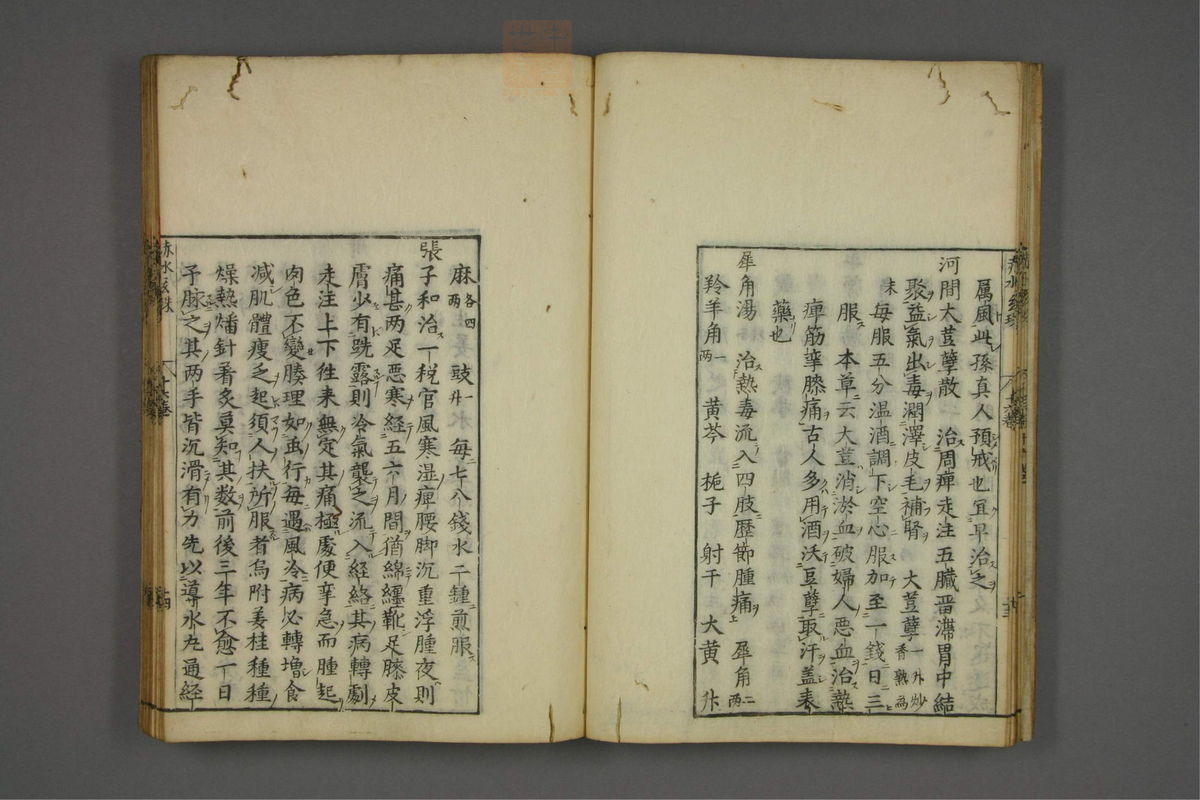 厲風此孫真人預戒也宜早治之
河間大荳蘖散　治周痺走注五臟畱滯胃中結
聚益氣出毒潤澤皮毛補腎　大荳蘖一升炒香熟為
末　每服五分温酒調下空心服加至一錢日三
服　本草云大荳消淤血破婦人悪血治熱
痺筋攣膝痛古人多用酒沃豆蘖取汗盖表
藥也
犀角湯　治熱毒流入四肢歷節腫痛　犀角二兩
羚羊角一兩　黄芩　梔子　射干　大黄　升
麻各四兩　豉一升　每七八錢水二鍾煎服
張子和治一税官風寒湿痺腰脚沉重浮腫夜則
痛甚两足悪寒経五六月間猶綿纒靴足膝皮
膚少有跣露則冷氣襲之流入経絡其病轉劇
走注上下徃来無定其痛極處便挛急而腫起
肉色不變腠理如虫行毎遇風冷病必轉增食
减肌體瘦乏起須人扶所服者烏附姜桂種種
燥熱燔針着灸莫知其数前後三年不愈一日
予脉之其两手皆沉滑有力先以導水丸通経
赤水玄珠